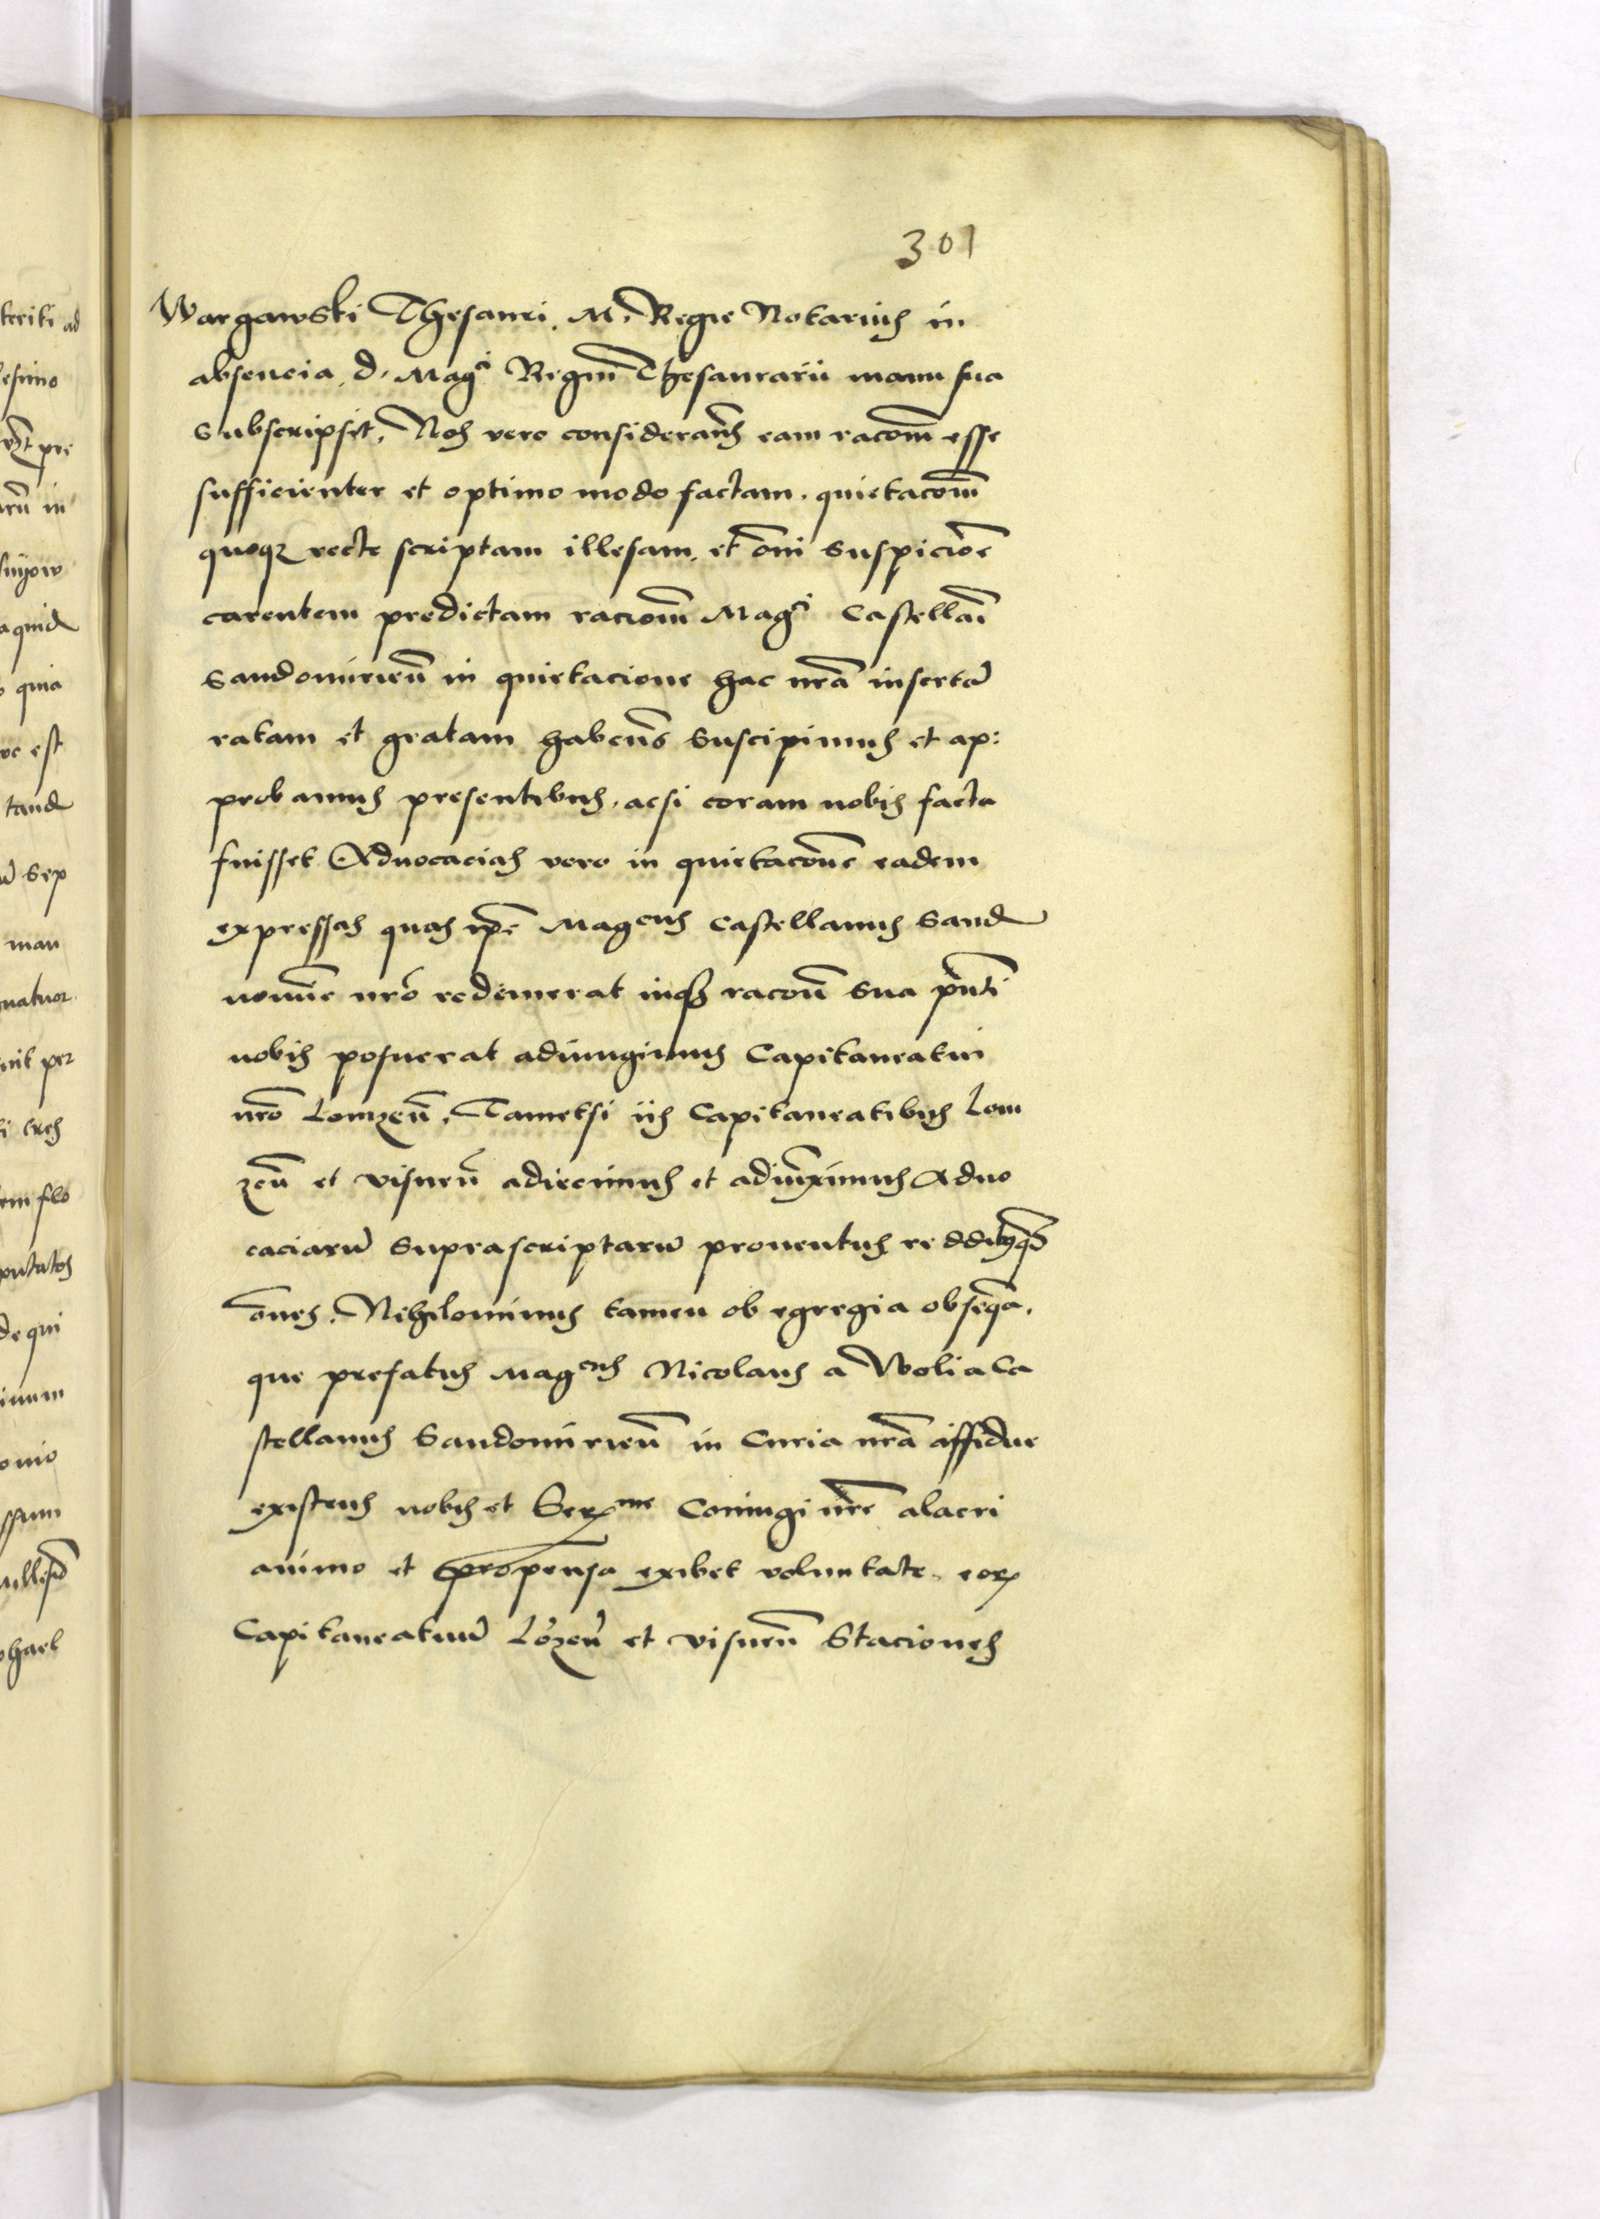 301
Wargawski Thesauri. M. Regie Notarius in
absencia d. Magci Regni Thesaurarii manu sua
Subscripsit. Nos vero considerantes eam racom̄ esse
sufficienter et optimo modo factam. quietacom̄
quoqz recte scriptam illesam et om̄i Suspicioē
carentem predictam raciom̄ Magci Castellani
Sandomirieñ in quietacione hac nr̄a insertā
ratam et gratam habeñs Suscipimus et ap:
probamus presentibus. acsi coram nobis facta
fuisset Aduocacias vero in quietacoē eadem
expressas quas ip̄e Magcus Castellanus Sand
noīe nr̄o redemerat racoñ Sua pn̄ti
nobis posuerat adiungimus Capitaneatui
nr̄o Lomzeñ. Tametsi iis Capitaneatibus Lom
zeñ et visneñ adiecimus et adiūximus Aduo
caciarū Suprascriptarū prouentus redditusqz
om̄es. Nihilominus tamen ob egregia obseqa.
que prefatus Magcus Nicolaus a Wolia Ca
stellanus Sandomirieñ in Curia nr̄a assidue
existens nobis et Serme Coniugi nr̄e alacri
animo et propensa exibet voluntate. eorz
Capitaneatuū Lōzeñ et visneñ Staciones
teriti ad
esimo
pre
in
quid
quia
est
tand
Sep
man
per
tres
flo
qui